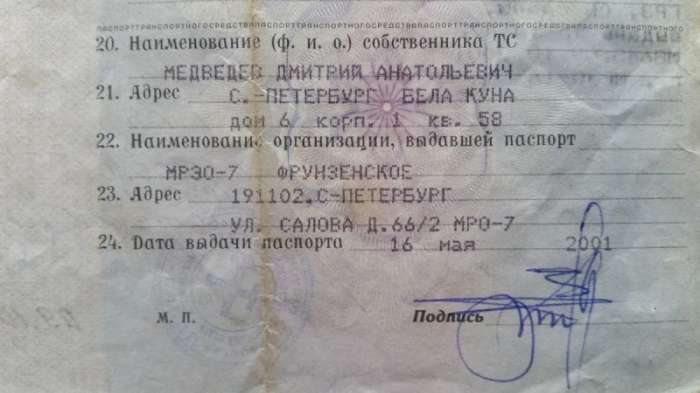 ПАСПОРТТРАНСПОРТНОГОСРЕДСТВАПАСПОРТТРАНСПОРТНОГОСРЕДСТВАПАСПОРТТРАНСПОРТНОГОСРЕДСТВА
20. Наименование (ф. и. о.) собственника ТС
МЕДВЕДЕВ ДМИТРИЙ АНАТОЛЬЕВИЧ
21. Адрес С.-ПЕТЕРБУРГ БЕЛА КУНА
дом 6 корп. 1 кв. 58
22. Наименование организации, выдавшей паспорт
МРЭО-7 ФРУНЗЕНСКОЕ
23. Адрес 191102,С-ПЕТЕРБУРГ
УЛ. САЛОВА Д.66/2 МРО-7
24. Дата выдачи паспорта 16 мая 2001
М. П. Подпись